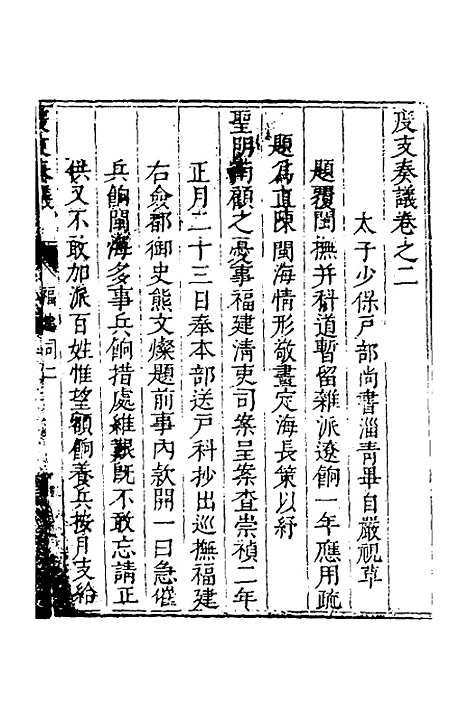 度支奏議卷之二
太子少保戶部尚書淄青畢自嚴視草
題覆閩撫并科道暫留雜派遼餉一年應用疏
題為直陳閩海情形敬畫定海長策以紓
聖明南顧之憂事福建清吏司案呈案查崇禎二年
正月二十三日奉本部送戶科抄出巡撫福建
右僉都御史熊文燦題前事內款開一曰急催
兵餉閩海多事兵餉措處維艱既不敢忘請正
供又不敢加派百姓惟望額餉養兵按月支給
度支奏議
福建司二